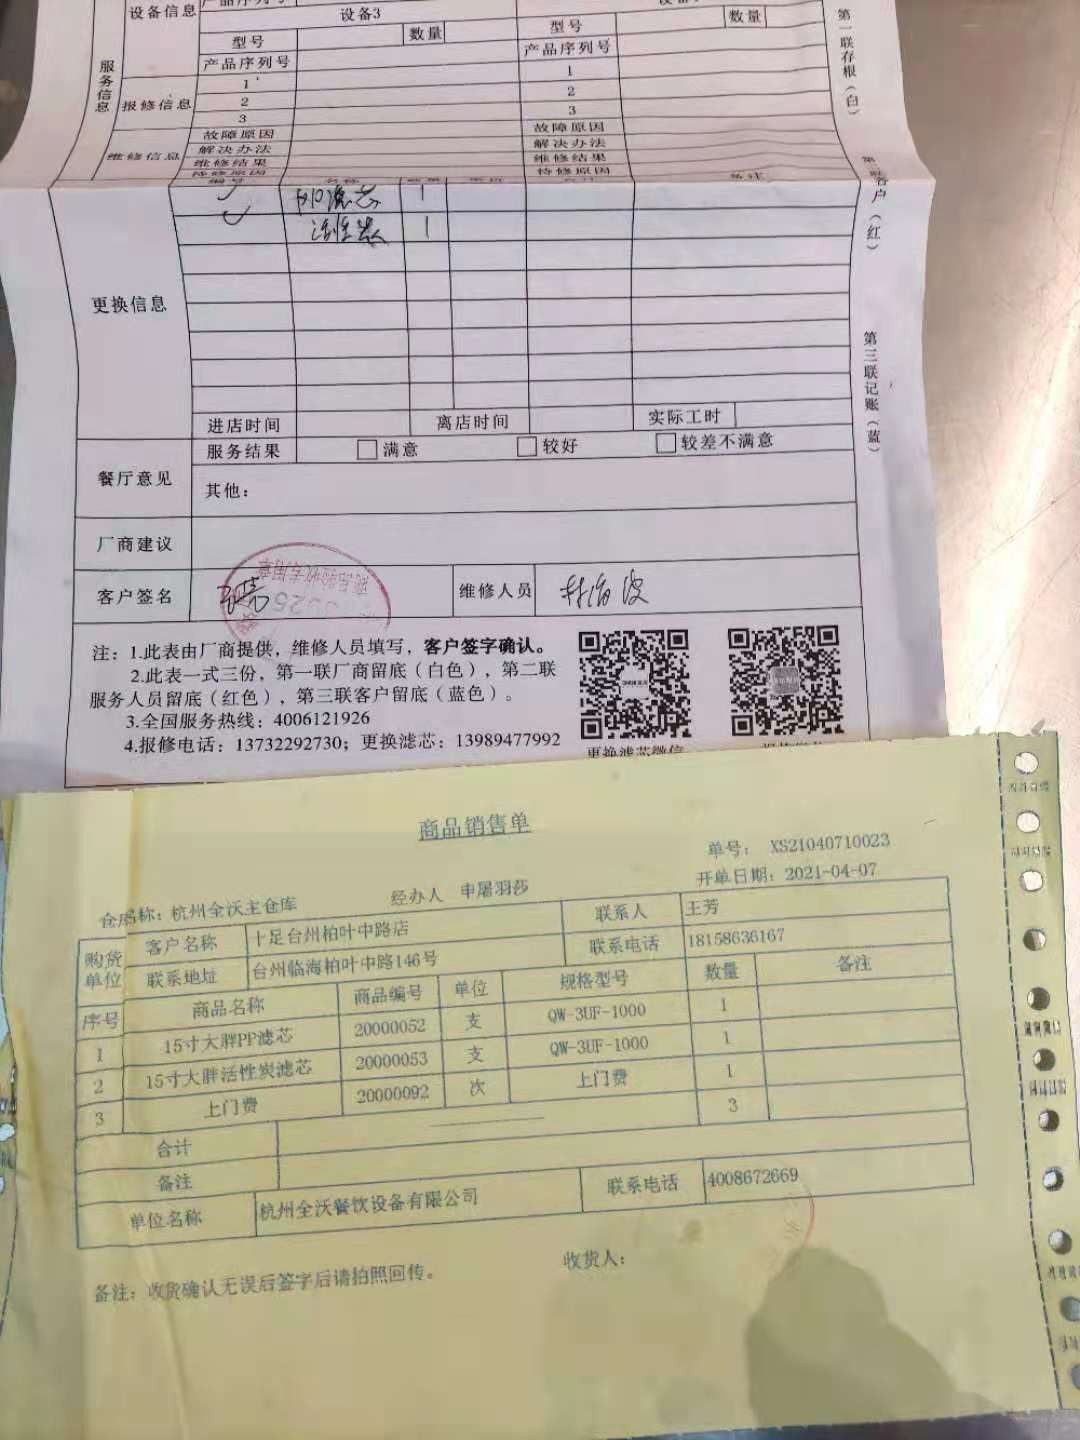 设备信息
设备3
数量
数量
型号
型号
产品序列号
产品序列号
服务信息
报修信息
1
2
3
1
2
3
维修信息
故障原因
故障原因
解决办法
解决办法
维修结果
维修结果
待修原因
待修原因
编号 名称 数量 单位 合计 备注
滤芯 1
1
更换信息
进店时间 离店时间 实际工时
餐厅意见
服务结果 满意 较好 较差不满意
其他：
厂商建议
客户签名 维修人员
商品验收专用章
注：1.此表由厂商提供，维修人员填写，客户签字确认。
2.此表一式三份，第一联厂商留底（白色），第二联
服务人员留底（红色），第三联客户留底（蓝色）。
3.全国服务热线：4006121926
4.报修电话：13732292730；更换滤芯：13989477992
更换滤芯微信
第一联存根（白）
客户（红）
第三联记账（蓝）
商品销售单
单号： XS21040710023
仓库名称：杭州全沃主仓库 经办人 申屠羽莎 开单日期：2021-04-07
购货单位 客户名称 十足台州柏叶中路店 联系人 王芳
联系地址 台州临海柏叶中路146号 联系电话 18158636167
序号 商品名称 商品编号 单位 规格型号 数量 备注
1 15寸大胖PP滤芯 20000052 支 QW-3UF-1000 1
2 15寸大胖活性炭滤芯 20000053 支 QW-3UF-1000 1
3 上门费 20000092 次 上门费 1
合计 3
备注
单位名称 杭州全沃餐饮设备有限公司 联系电话 4008672669
备注：收货确认无误后签字后请拍照回传。 收货人：